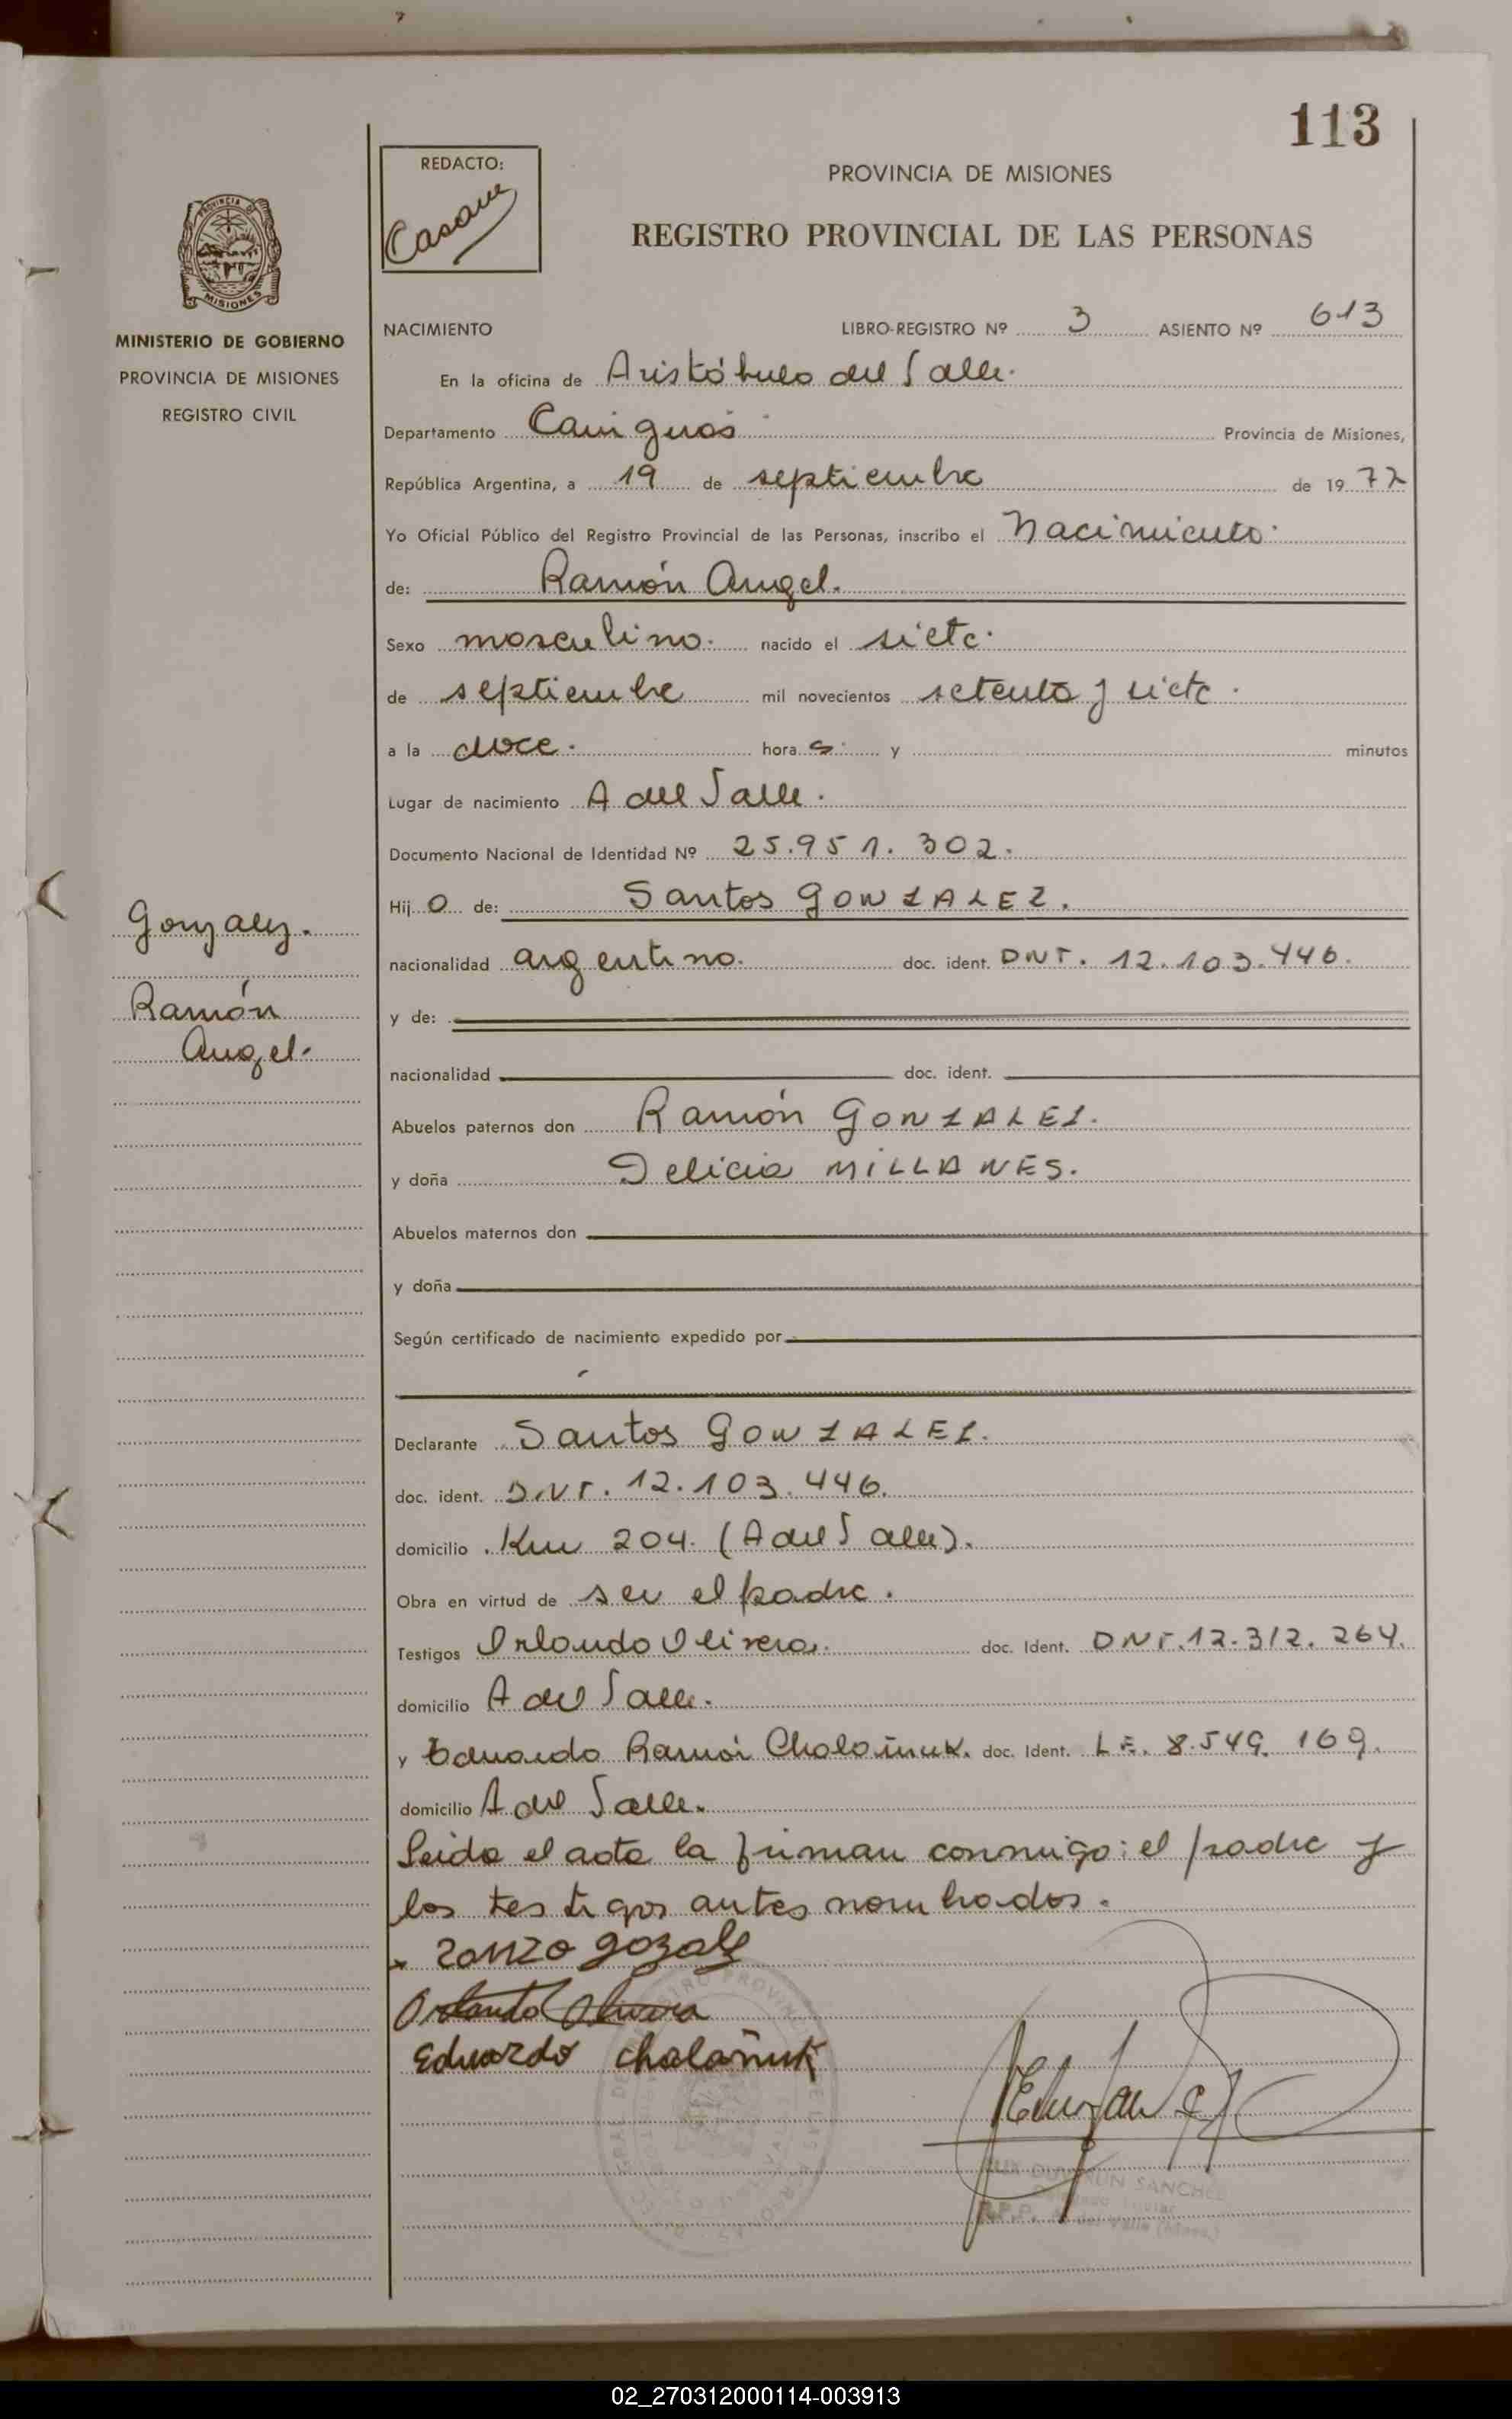 113
REDACTO:
PROVINCIA DE MISIONES
REGISTRO PROVINCIAL DE LAS PERSONAS
PROVINCIA DE
MISIONES
MINISTERIO DE GOBIERNO
PROVINCIA DE MISIONES
REGISTRO CIVIL
NACIMIENTO LIBRO-REGISTRO Nº 3 ASIENTO Nº 613
En la oficina de Aristóbulo del Valle.
Departamento Cainguás Provincia de Misiones,
República Argentina, a 19 de septiembre de 1977
Yo Oficial Público del Registro Provincial de las Personas, inscribo el Nacimiento.
de: Ramón Angel.
Sexo masculino. nacido el siete.
de septiembre mil novecientos setenta y siete.
a la doce. horas y minutos
Lugar de nacimiento A del Valle.
Documento Nacional de Identidad Nº 25.951.302.
Hijo de: Santos GONZALEZ.
nacionalidad argentino. doc. ident. DNI. 12.103.446.
y de:
nacionalidad doc. ident.
Abuelos paternos don Ramón GONZALEZ.
y doña Delicia MILLANES.
Abuelos maternos don
y doña
Según certificado de nacimiento expedido por
Declarante Santos GONZALEZ.
doc. ident. DNI. 12.103.446.
domicilio Km 204. (A del Valle).
Obra en virtud de ser el padre.
Testigos Orlando Olivera. doc. Ident. DNI. 12.312.264.
domicilio A del Valle.
y Eduardo Ramón Cholañuk. doc. Ident. LE. 8.549.169.
domicilio A del Valle.
Leida el acta la firman conmigo: el padre y
los testigos antes nombrados.
Orlando Olivera
Eduardo Cholañuk
SANCHEZ
R.P.P. A. del Valle (Mnes.)
Gonzalez.
Ramón
Angel.
02_270312000114-003913